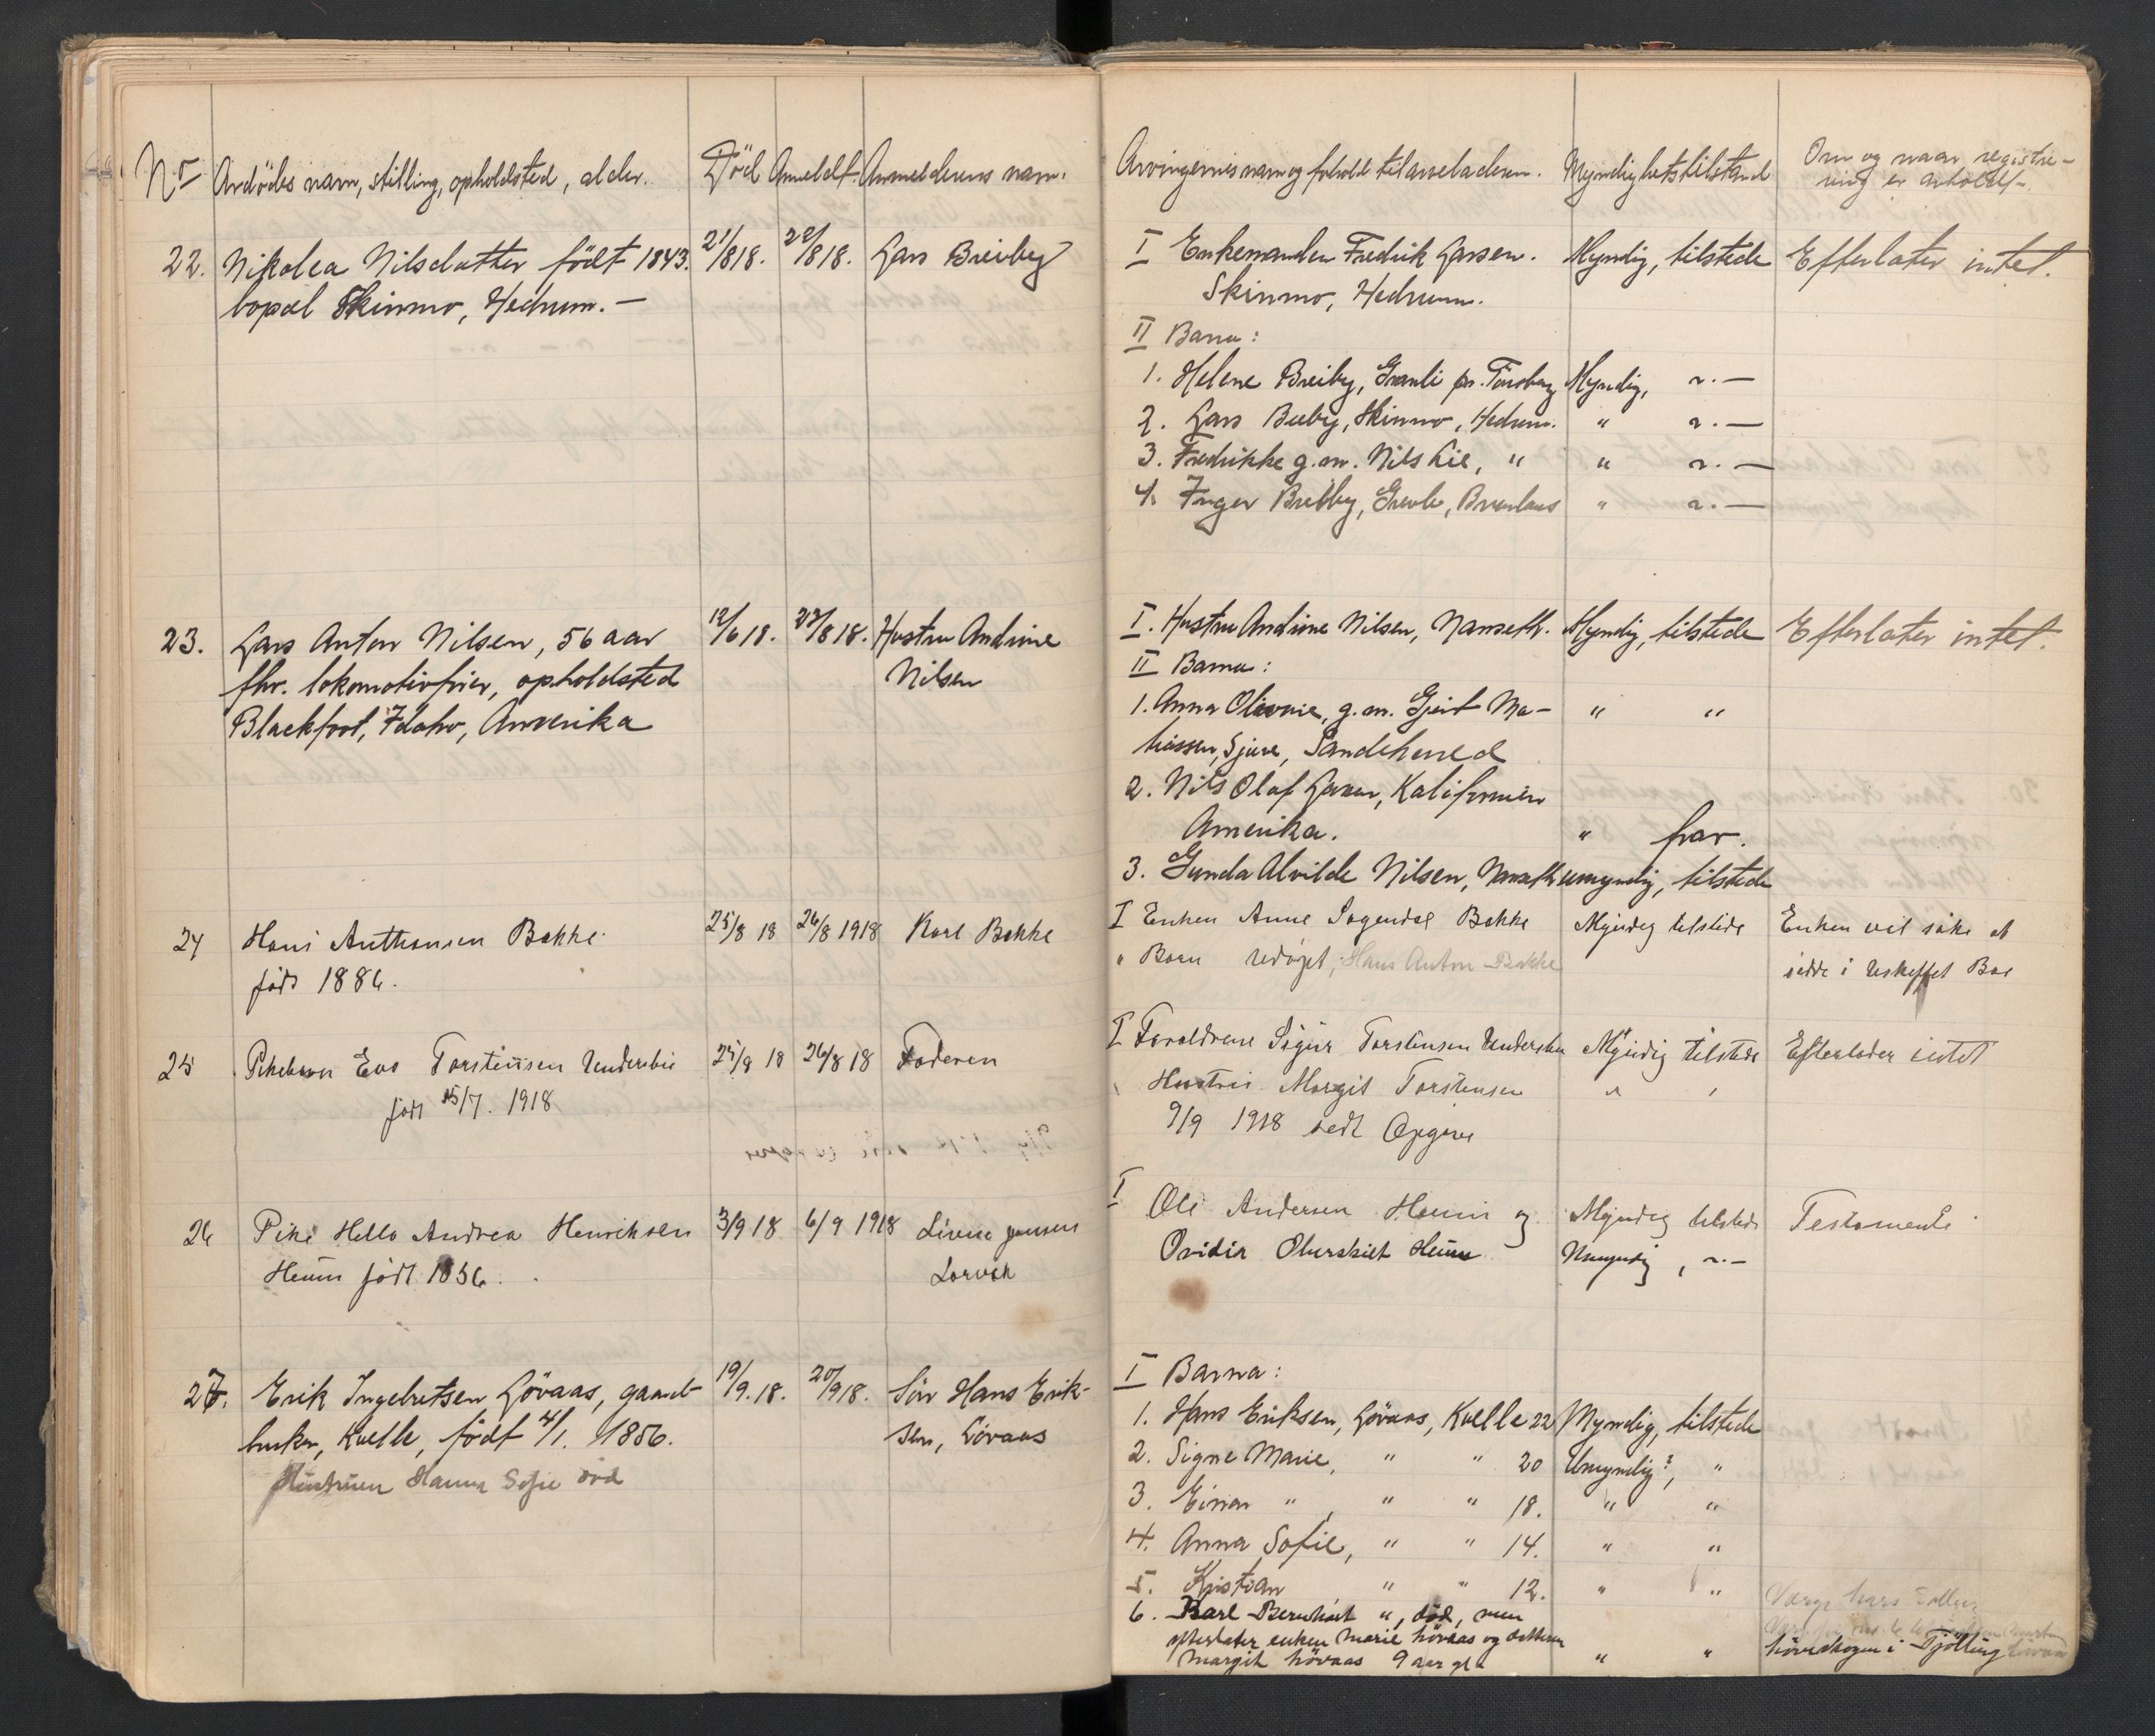 Nr Avdödes navn, stilling, opholdsted, alder. Död Anmeldt. Anmelderens navn.
22. Nikolea Nilsdatter födt 1843. 21/8 18. 22/8 18. Lars Breiby
bopæl Skinmo, Hedrum. —
23. Lars Anton Nilsen, 56 aar 12/6 18. 23/8 18. Hustru Andrine
fhv. lokomotivfører, opholdsted Nilsen
Blackfoot, Idaho, Amerika
24 Hans Anthonsen Bakke 25/8 18 26/8 1918 Karl Bakke
född 1886.
25 Pikebarn Eva Torstensen Undersbo 25/8 18 26/8 18 Faderen
född 15/7. 1918
26 Pike Hella Andrea Henriksen 3/9 18 6/9 1918 Jensen
Heum född 1856. Larvik
27. Erik Ingebretsen Lövaas, gaard- 19/9. 18. 20/9 18. Sön Hans Erik-
bruker, Kvelle, födt 4/1. 1856. sen, Lövaas
Hustruen Hanna Sofie död
Arvingernes navn og forhold til arveladeren. Myndighetstilstand Om og naar registre-
ring er avholdt.
I Enkemanden Fredrik Larsen. Myndig, tilstede Efterlater intet.
Skinmo, Hedrum.
II Barn:
1. Helene Breiby, Granli pr. Tönsberg Myndig, " —
2. Lars Breiby, Skinmo, Hedrum. " " —
3. Fredrikke g.m. Nils Lie, " " " —
4. Inger Breiby, Grevle, Brunlanes " " —
I. Hustru Andrine Nilsen, Nanseth. Myndig, tilstede Efterlater intet.
II Barna:
1. Anna Olivine, g.m. Gjert Ma- " "
thissen, Sandeherred
2. Nils Olaf Larsen, Kalifornien
Amerika. " frav.
3. Gunda Alvilde Nilsen, Nanseth umyndig, tilstede
I Enken Anne Bakke Myndig tilstede Enken vil söke at
" Barn Hans Anton Bakke sidde i uskiftet Bo
I Foreldrene Sigur Torstensen Undersbo Myndig tilstede Efterlader intet
Hustru Margit Torstensen " "
9/9 1918 sedt Opgave
I Ole Andersen Heum og Myndig tilstede Testamente
Ovidia Heum Umyndig, " —
I Barna:
1. Hans Eriksen, Lövaas, Kvelle 22 Myndig, tilstede
2. Signe Marie, " " 20 Umyndig?, "
3. Einar " , " " 18. " "
4. Anna Sofie, " " 14. " "
5. Kristian " " 12. " "
6. Karl Bernhart ", död, men
efterlater enken Marie Lövaas og datteren
Margit Lövaas 9 aar gl. " " i Tjölling